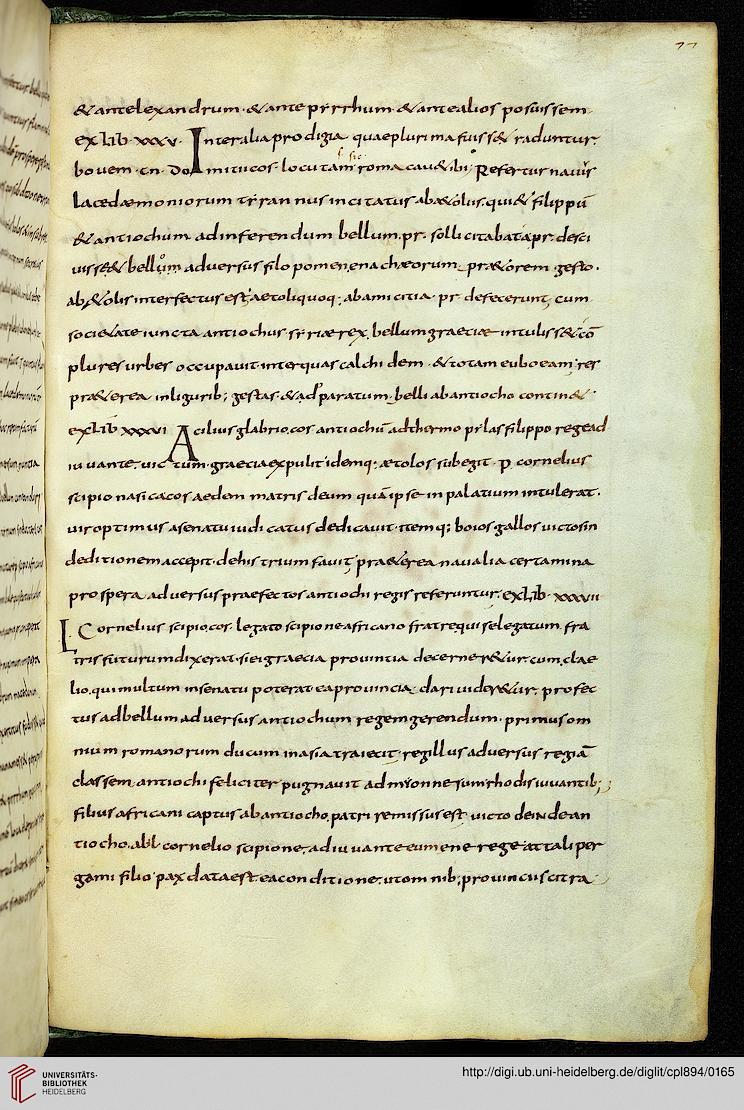 77
& antelexandrum · & ante pyrrhum · & antealios posuissem
ex lib · xxxv · Interalia prodigia quae plurima fuisse traduntur.
bovem · cn · domitii cos · locutam roma cave tibi Refertur navis
Lacedæmoniorum tyrannus incitatus abætolis · qui& filippū
& antiochum adinferendum bellum · pr · sollicitabat apr · desci
vit & bellum adversus filopomenen achæorum præ&orem gesto ·
ab&olis interfectus est; aetoli quoq; abamicitia · pr · defecerunt, cum
soci&ate iuncta antiochus syriæ rex · bellum graeciæ intuliss& cō
plures urbes occupavit inter quas calchidem · & totam euboeam; res
præ&erea inligurib; gestas · & adparatum belli ab antiocho contin& ·
ex lib xxxvi Acilius glabrio · cos antiochū adthermopylas filippo rege ad
iuvante · victum · graecia expulit idemq; ætolos subegit · p cornelius
scipio nasica cos aedem matris deum quā ipse in palatium intulerat ·
vir optimus a senatu iudicatus dedicavit · itemq; boios gallos victos in
deditionem accepit · de his triumfavit præ&erea navalia certamina
prospera adversus praefectos antiochi regis referuntur · ex Lib · xxxvii
L · Cornelius scipio cos · legato scipione africano fratre qui se legatum fra
tris futurum dixerat · si ei graecia provintia decerner&ur · cum · clae
lio · qui multum in senatu poterat ea provincia · dari vider&ur · profec
tus ad bellum adversus antiochum regem gerendum · primus om
nium romanorum ducum in asia traiecit · regillus adversus regiā
classem antiochi feliciter pugnavit ad myonnesum rhodis iuvantib;
filius africani captus ab antiocho · patri remissus est · victo deinde an
tiocho · ab l · cornelio scipione · adiuvante eumene rege attali per
gami filio pax data est · ea conditione · ut omnib; provinciis citra
UNIVERSITÄTS-
BIBLIOTHEK
HEIDELBERG
http://digi.ub.uni-heidelberg.de/diglit/cpl894/0165